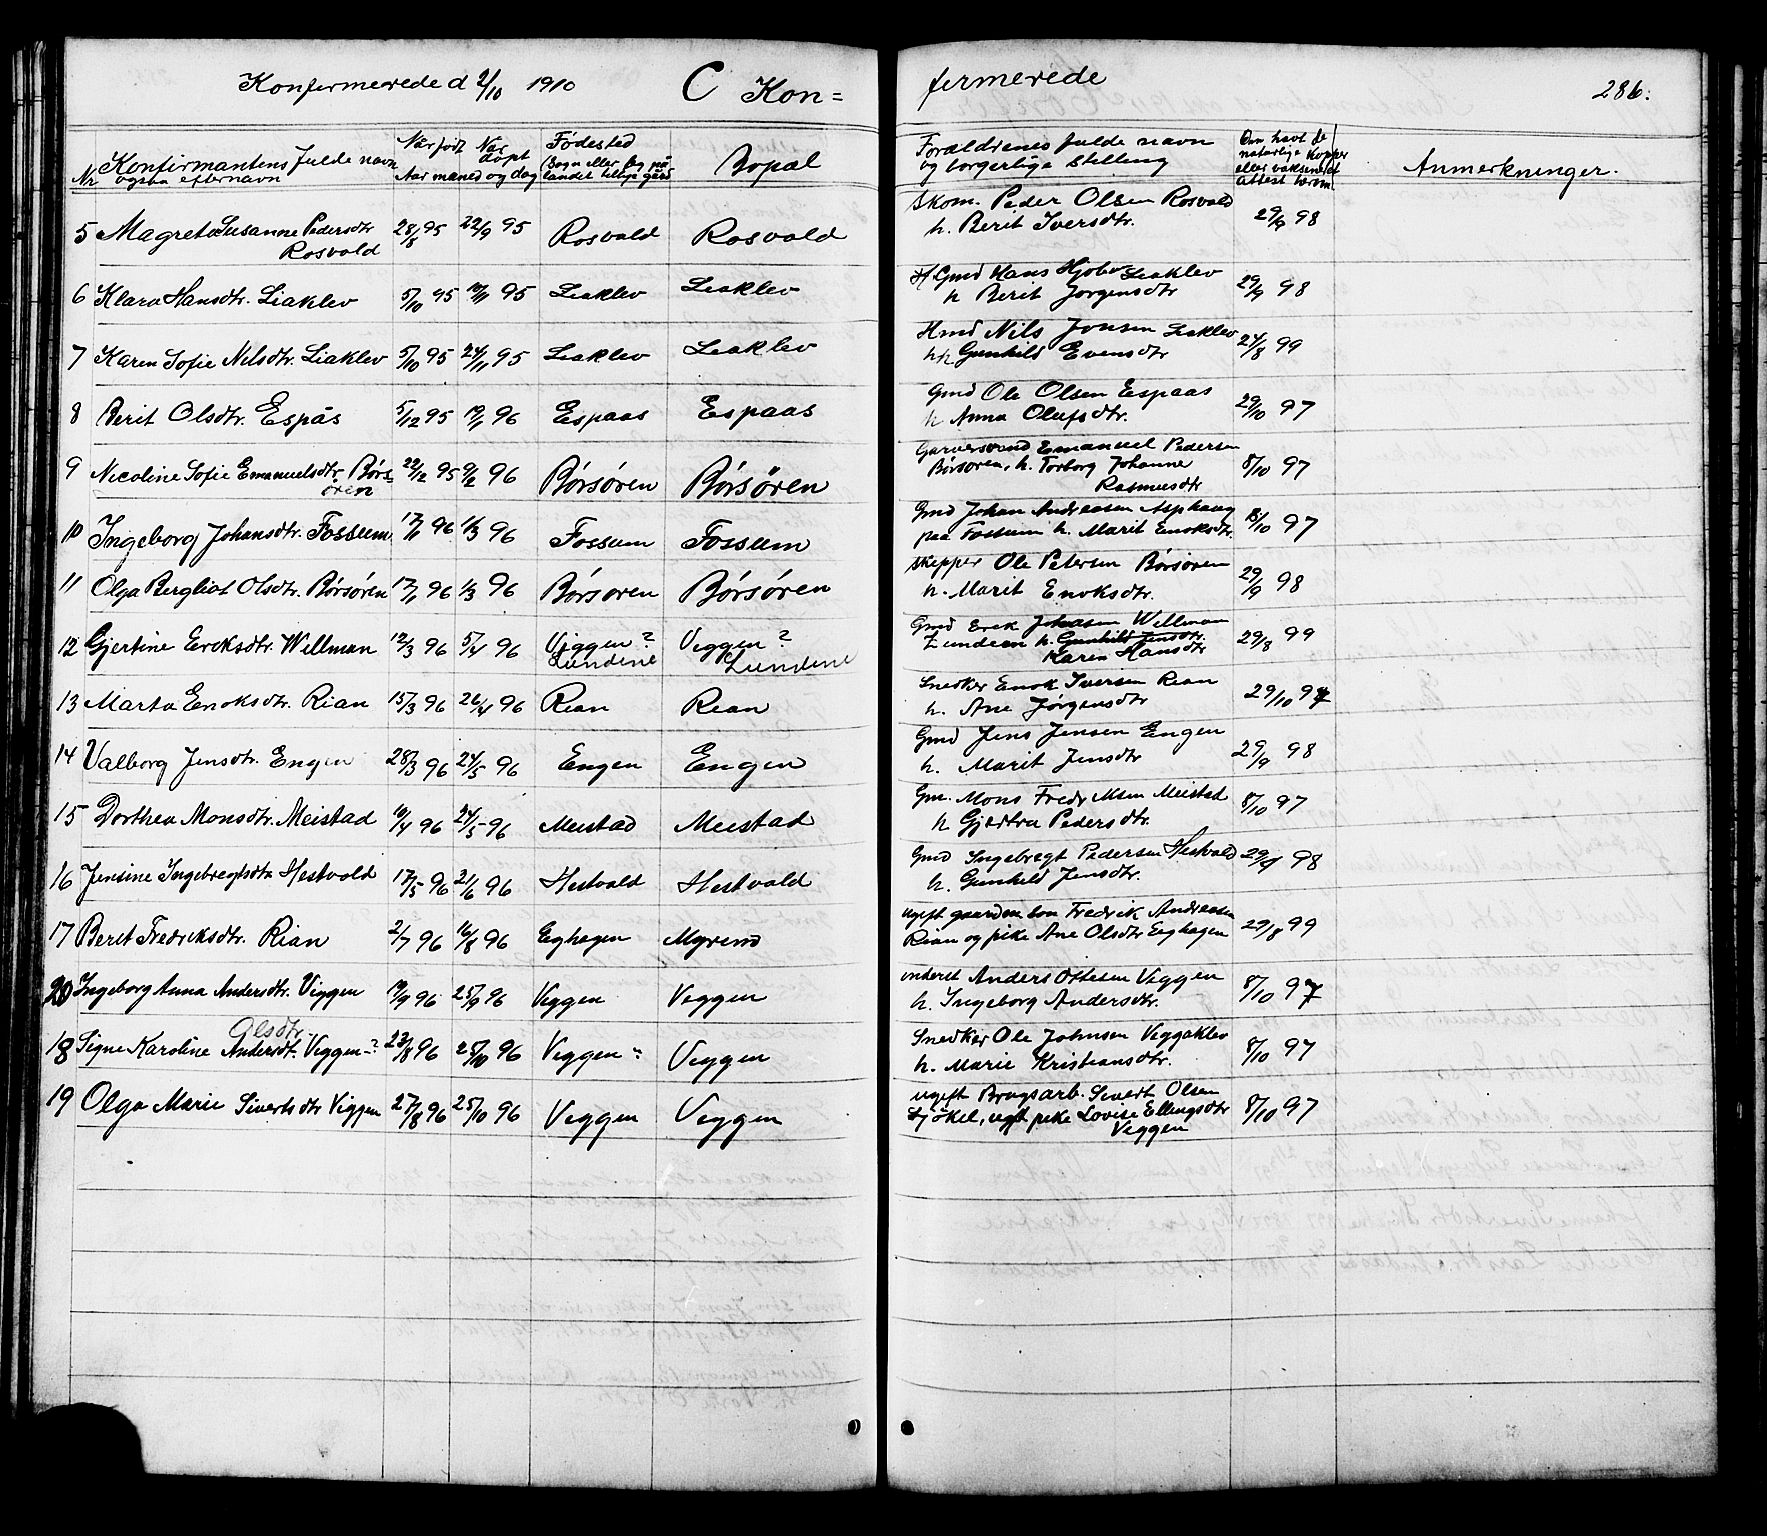 Konfermerede d 2/10 1910 C Kon=
fermerede 286.
Nr Konfirmantens fulde navn
ogsaa efternavn
Når født
Aar maned
Nar døpt
og dag
Fødested
(Sogn eller by på
landet tillige gård
Bopæl
Forældrenes fulde navn
og borgerlige stilling
Om havt de
naturlige Kopper
eller vaksineret
Anmerkninger.
5 Magreta Susanne Pedersdtr 28/8 95 22/9 95 Rosvold Rosvold Skom. Peder Olsen Rosvold 29/9 98
Rosvold h. Berit Iversdtr.
6 Klara Hansdtr. Liaklev 5/10 95 95 Liaklev Liaklev Gmd Hans Liaklev 29/9 98
h Berit Jørgensdtr
7 Karen Sofie Nilsdtr. Liaklev 5/10 95 24/11 95 Liaklev Liaklev Hmd Nils Jonsen Liaklev 21/8 99
Gunhild Evensdtr
8 Berit Olsdtr. Espås 5/12 95 96 Espaas Espaas Gmd Ole Olsen Espaas 29/10 97
h Anna Olufsdtr.
9 Nicoline Sofie Emanuelsdtr. Børs- 22/12 95 9/2 96 Børsøren Børsøren Garversvend Emanuel Pedersen 8/10 97
øren Børsøren, h. Torborg Johanne
Rasmusdtr
10 Ingeborg Johansdtr. Fossum 17/1 96 1/3 96 Fossum Fossum Gmd Johan Andreasen Asphaug 97
paa Fossum h. Marit Enoksdtr.
11 Olga Bergliot Olsdtr. Børsøren 17/1 96 1/3 96 Børsøren Børsøren Skipper Ole Petersen Børsøren 29/9 98
h. Marit Enoksdtr.
12 Gjertine Ericksdtr. Willman 12/3 96 5/4 96 Viggen? Veggen? Gmd Erik Johasen Willman 29/8 99
Lundene Lundene Lundeen h. Gunhild Jensdtr.
Karen Hansdtr
13 Marta Enoksdtr. Rian 15/3 96 26/4 96 Rian Rian Snedker Enok Iversen Rian 29/10 97
h. Ane Jørgensdtr
14 Valborg Jensdtr. Engen 28/3 96 24/5 96 Engen Engen Gmd Jens Jensen Engen 29/9 98
h. Marit Jensdtr
15 Dorthea Monsdtr. Meistad 10/4 96 24/5 96 Meistad Meistad Gm. Mons Fredriksen Meistad 8/10 97
h Gjertru Pedersdtr.
16 Jensine Ingebregtsdtr Hestvold 17/5 96 21/6 96 Hestvold Hestvold Gmd Ingebregt Pedersen Hestvold 29/9 98
h. Gunhild Jensdtr.
17 Berit Fredriksdtr. Rian 2/7 96 16/8 96 Eghagen Myrmo ugift gaardm.søn Fredrik Andreasen 29/8 99
Rian og pike Ane Olsdtr Eghagen
20 Ingeborg Anna Andersdtr. Viggen 96 25/9 96 Viggen Viggen Anders Ottesen Viggen 8/10 97
h. Ingeborg Andersdtr.
Olsdtr.
18 Signe Karoline Andersdt. Viggen-? 23/8 96 25/10 96 Viggen? Viggen Snedker Ole Johnsen Viggaklev 8/10 97
h. Marie Kristiansdtr.
19 Olga Marie Sivertsdtr Viggen 27/8 96 25/10 96 Viggen Viggen ugift Brugsarb. Sivert Olsen 8/10 97
pike Lovise Ellingsdtr
Viggen